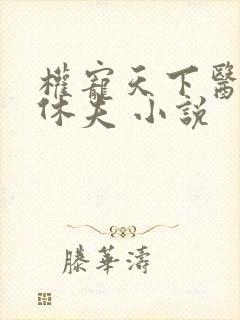 權寵天下醫
休夫 小說
滕華濤